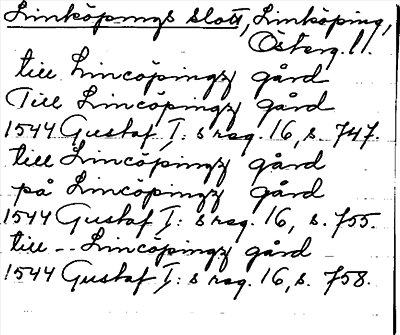 Linköpings slott, Linköping,
Österg. ll.
till Lincöpingz gård
Till Lincöpingz gård
1544 Gustaf I:s reg. 16, s. 747.
till Lincöpingz gård
på Lincöpingz gård
1544 Gustaf I:s reg. 16, s. 755.
till -- Lincöpingz gård
1544 Gustaf I:s reg. 16, s. 758.